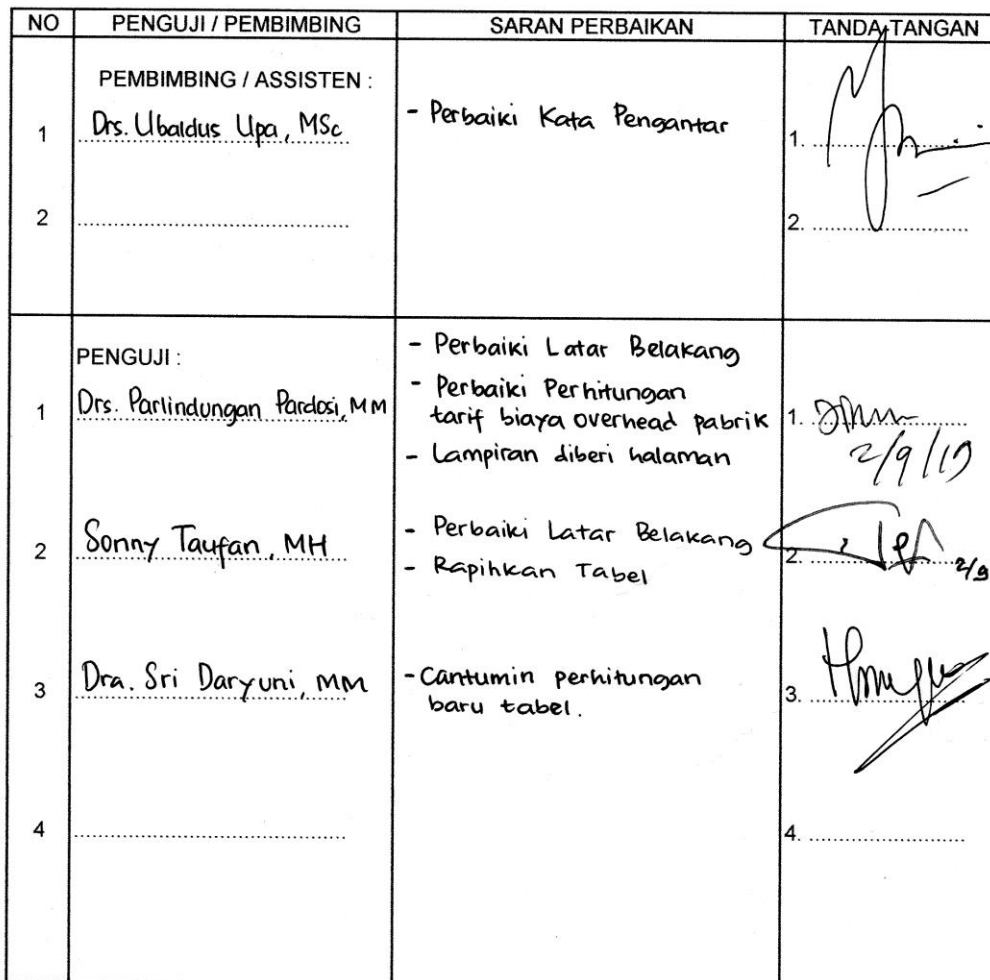 NO PENGUJI / PEMBIMBING SARAN PERBAIKAN TANDA TANGAN
PEMBIMBING / ASSISTEN :
1 Drs. Ubaldus Upa, MSc - Perbaiki Kata Pengantar 1.
2 2.
PENGUJI :
- Perbaiki Latar Belakang
1 Drs. Parlindungan Pardosi, MM - Perbaiki Perhitungan
tarif biaya overhead pabrik 1.
2/9/19
- Lampiran diberi halaman
2 Sonny Taufan, MH - Perbaiki Latar Belakang 2.
- Rapihkan Tabel 2/9
3 Dra. Sri Daryuni, MM - Cantumin perhitungan 3.
baru tabel.
4 4.